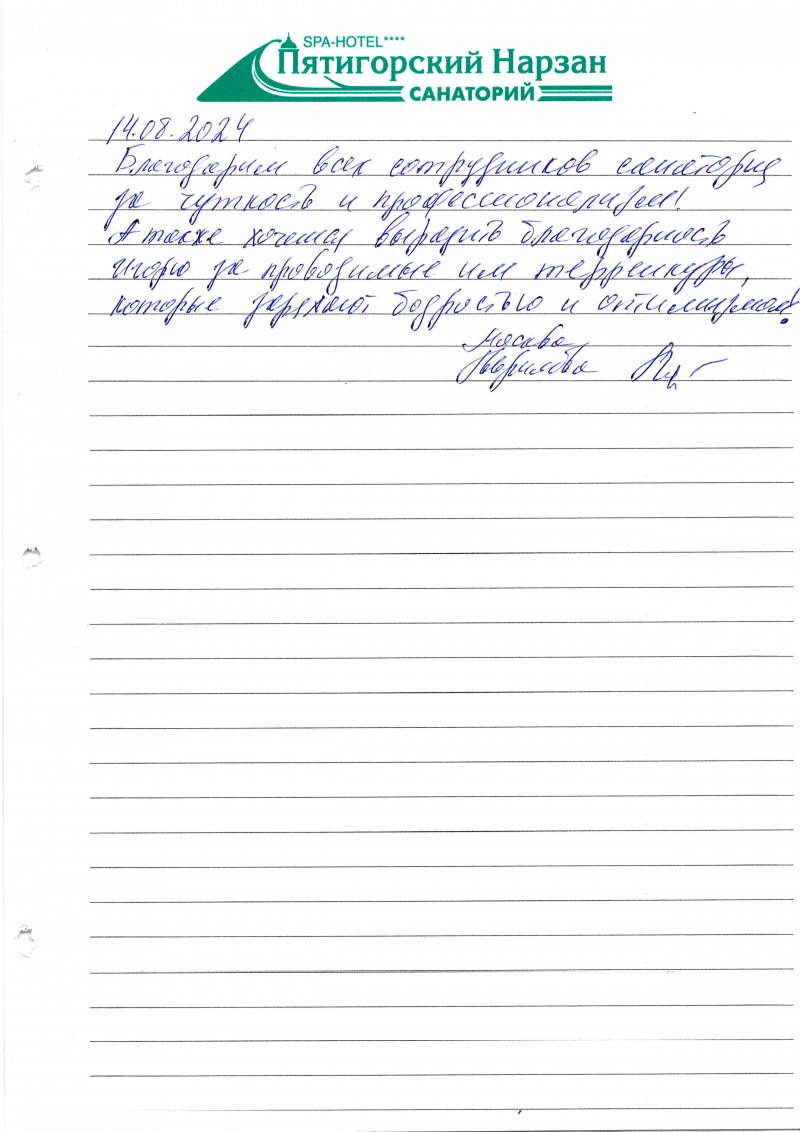 SPA-HOTEL****
Пятигорский Нарзан
САНАТОРИЙ
14.08.2024
Благодарим всех сотрудников санатория
за чуткость и профессионализм!
А также хочется выразить благодарность
Игорю за проводимые им терренкуры,
которые заряжают бодростью и оптимизмом!
Москва